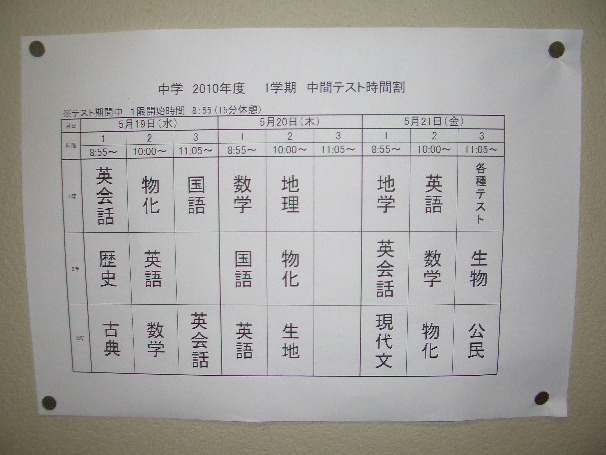 中学 2010年度 1学期 中間テスト時間割
※テスト期間中 1限開始時間 8:55(15分休憩)
5月19日(水) 5月20日(木) 5月21日(金)
1 2 3 1 2 3 1 2 3
8:55～ 10:00～ 11:05～ 8:55～ 10:00～ 11:05～ 8:55～ 10:00～ 11:05～
1年 英会話 物化 国語 数学 地理 地学 英語 各種テスト
2年 歴史 英語 国語 物化 英会話 数学 生物
古典 数学 英会話 英語 生地 現代文 物化 公民